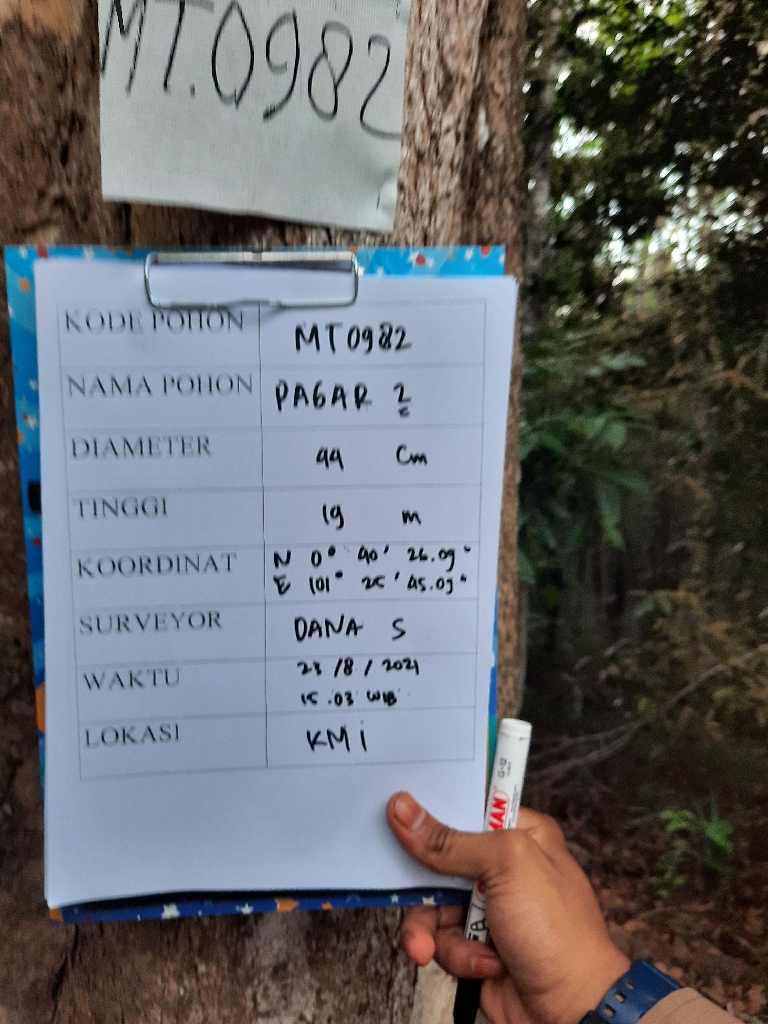 MT.0982
KODE POHON MT0982
NAMA POHON PAGAR 2
DIAMETER 44 Cm
TINGGI 19 m
KOORDINAT N 0° 40' 26.09"
E 101° 25' 45.09"
SURVEYOR DANA S
WAKTU 23/8/2021
15.03 WIB
LOKASI KMi
G-12
MAN